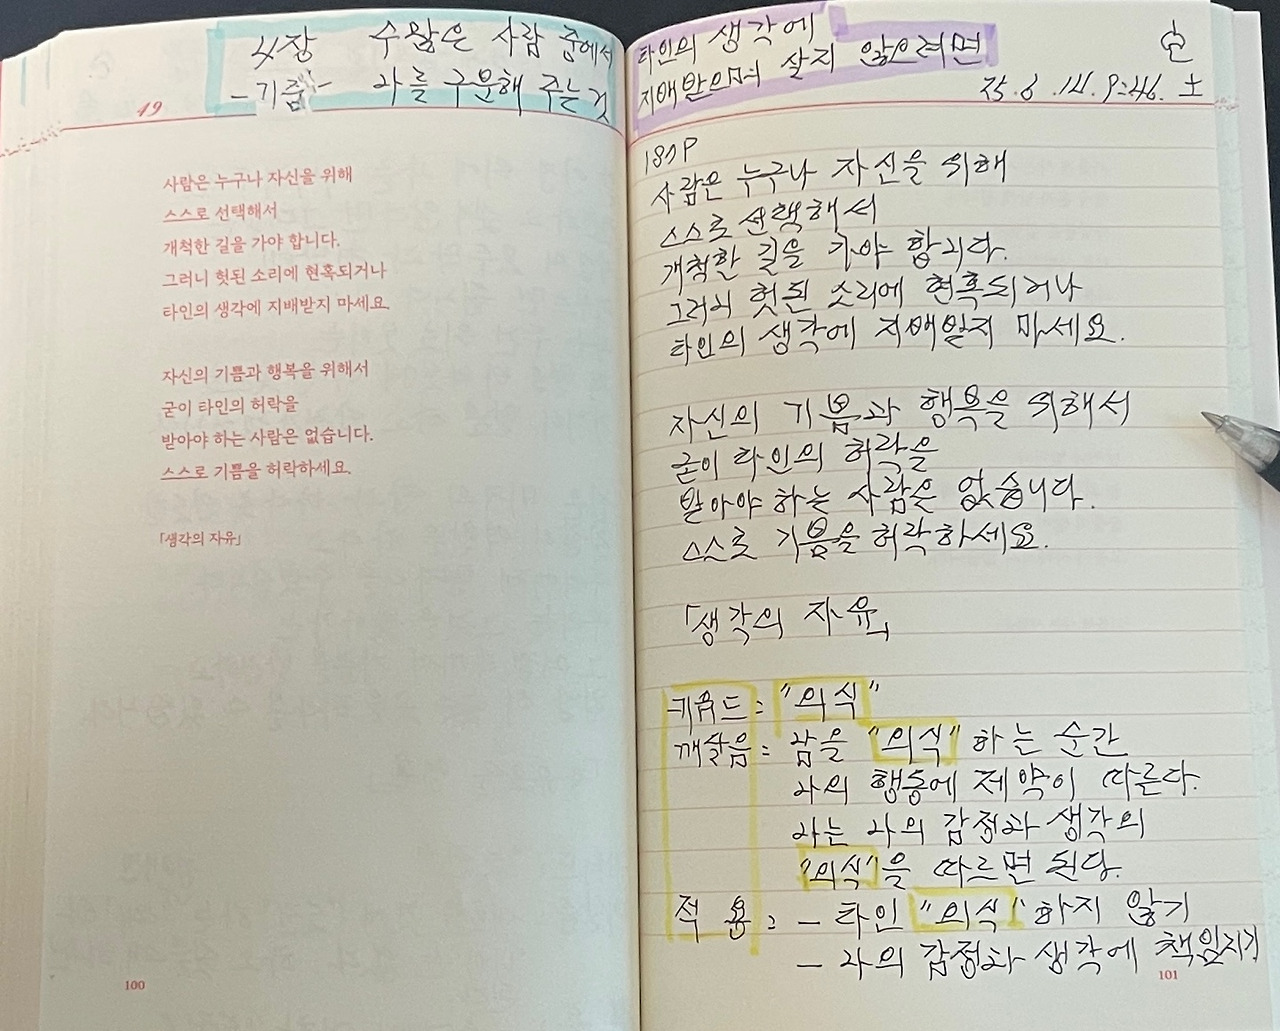 4장 수많은 사람 중에서
-기쁨- 나를 구분해 주는 것
49
사람은 누구나 자신을 위해
스스로 선택해서
개척한 길을 가야 합니다.
그러니 헛된 소리에 현혹되거나
타인의 생각에 지배받지 마세요.
자신의 기쁨과 행복을 위해서
굳이 타인의 허락을
받아야 하는 사람은 없습니다.
스스로 기쁨을 허락하세요.
「생각의 자유」
100
타인의 생각에
지배받으며 살지 않으려면
25.6.14.9:46. 土
187P
사람은 누구나 자신을 위해
스스로 선택해서
개척한 길을 가야 합니다.
그러니 헛된 소리에 현혹되거나
타인의 생각에 지배받지 마세요.
자신의 기쁨과 행복을 위해서
굳이 타인의 허락을
받아야 하는 사람은 없습니다.
스스로 기쁨을 허락하세요.
「생각의 자유」
키워드 : "의식"
깨달음 : 남을 "의식" 하는 순간
나의 행동에 제약이 따른다.
나는 나의 감정과 생각의
"의식"을 따르면 된다.
적용 : - 타인 "의식" 하지 않기
- 나의 감정과 생각에 책임지기
101